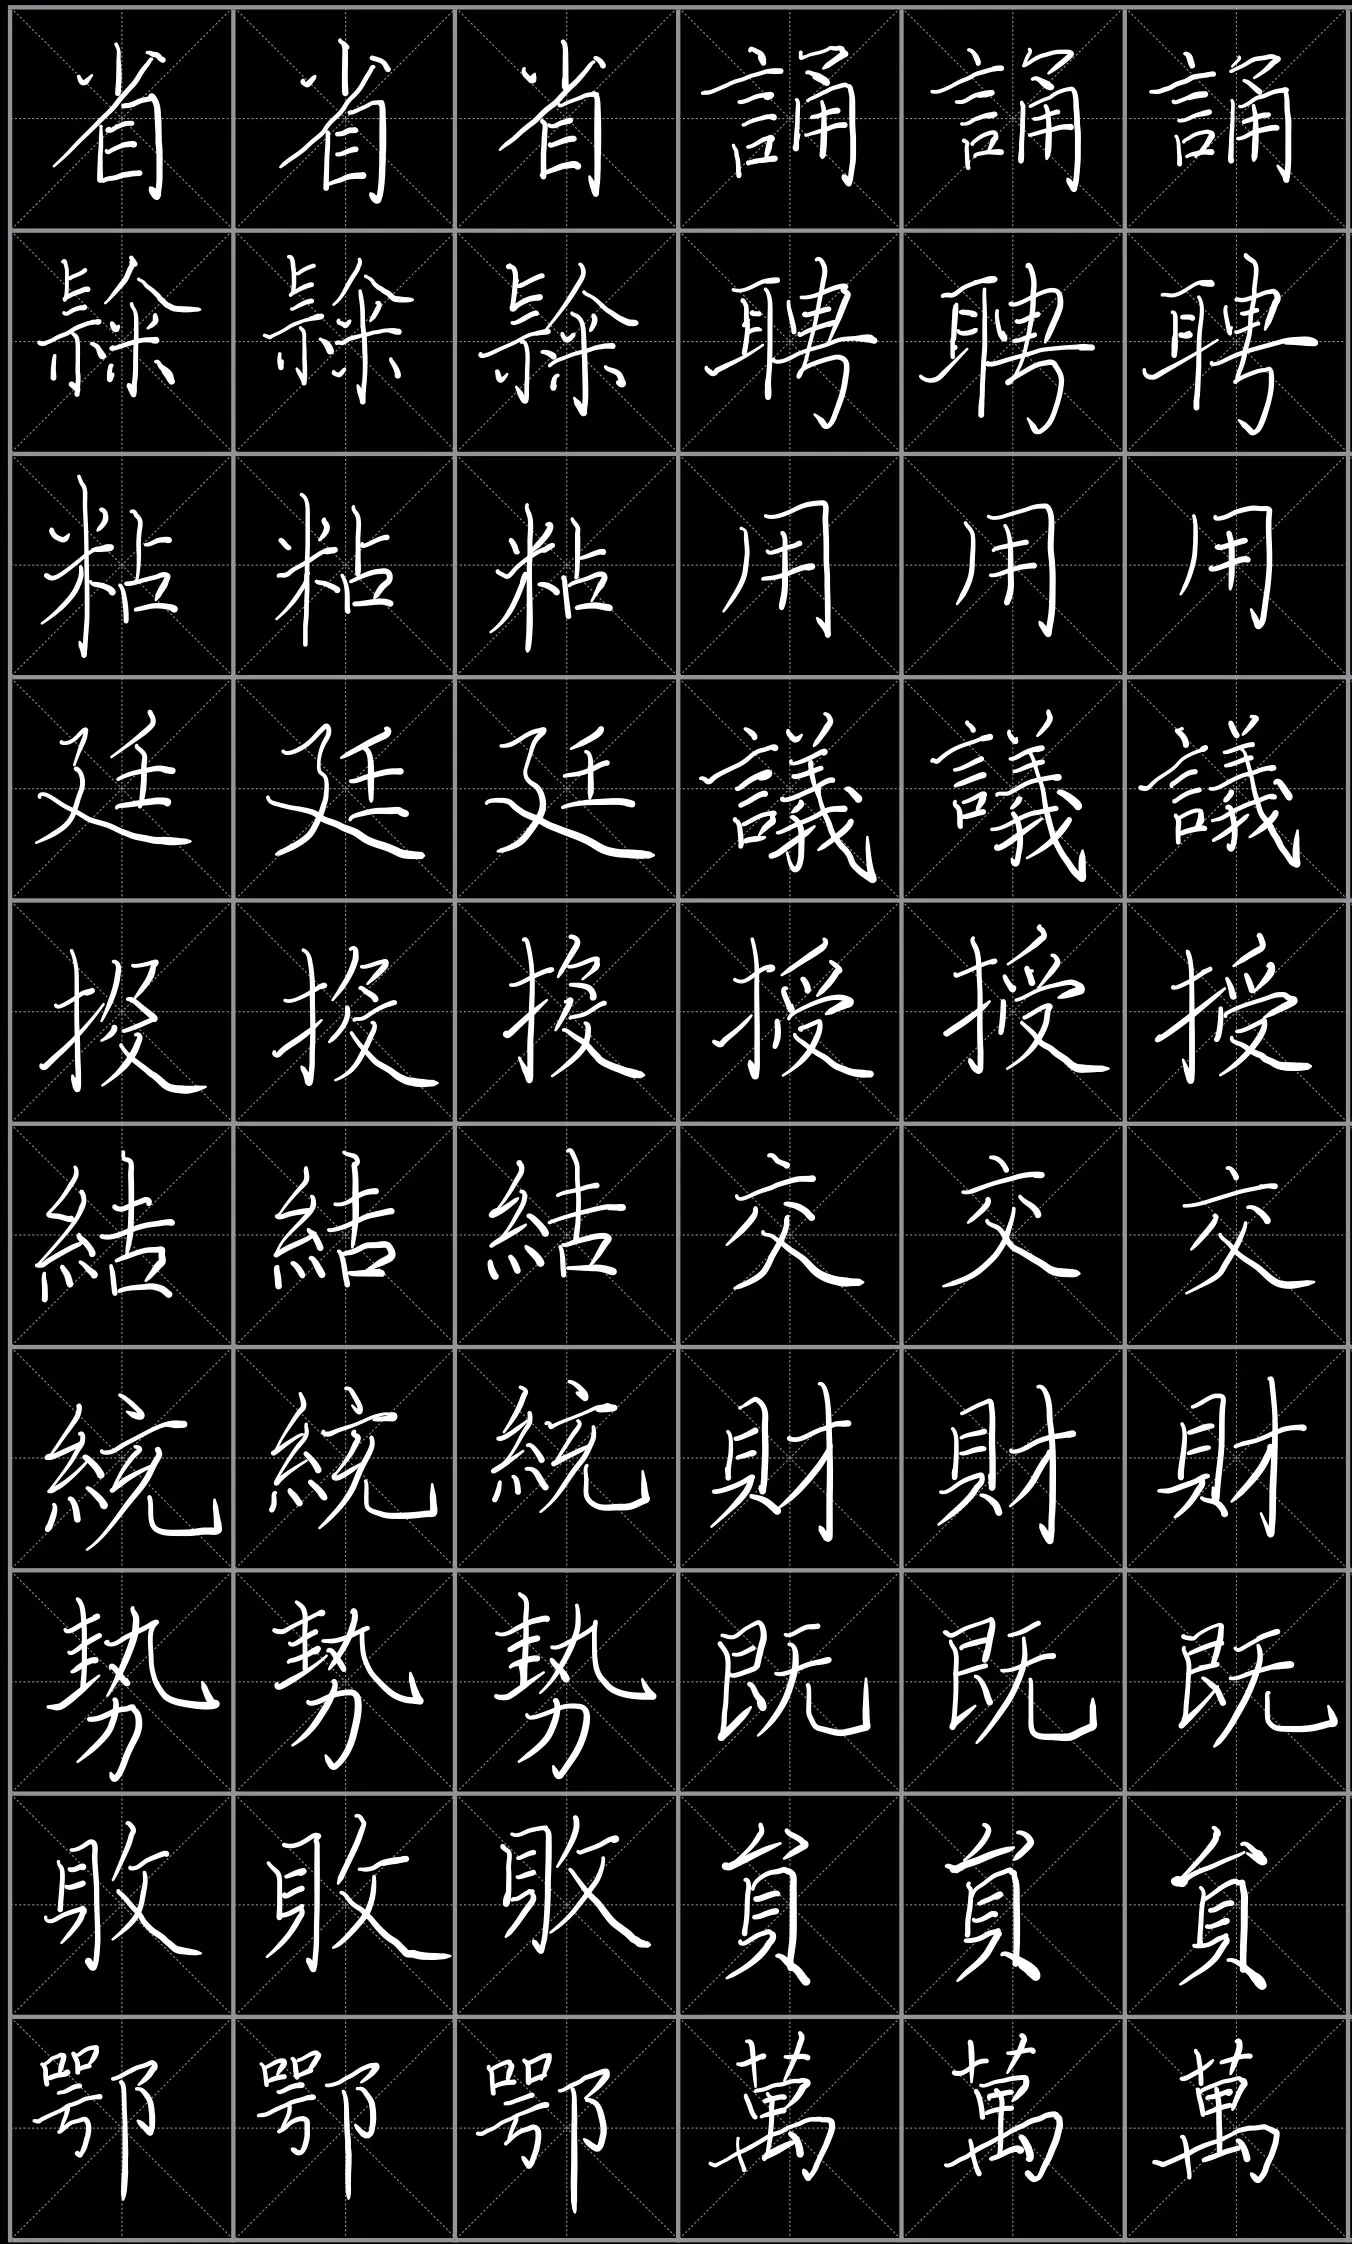 省省省誦誦誦
聘聘聘
粘粘粘用用用
廷廷廷議議議
投投投授授授
結結結交交交
統統統財財財
勢勢勢既既既
敗敗敗貟貟貟
鄂鄂鄂萬萬萬